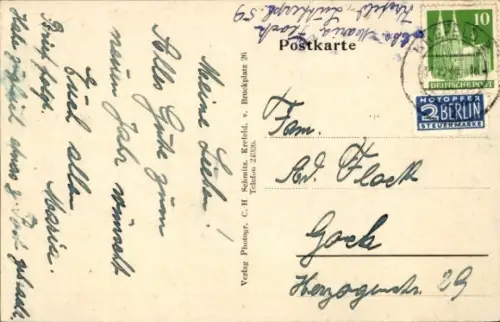 Meine Lieben!
Alles Gute zum
neuen Jahr wünscht
Euch allen
Maria.
Brief folgt.
Habe
Verlag Photogr. C. H. Schmitz, Krefeld, v. Bruckplatz 26
Telefon 22936
Maria
Flock
Krefeld
59
Postkarte
10
DEUTSCHE POST
NOTOPFER
2 BERLIN
STEUERMARKE
Fam.
Ad. Flock
Goch
Herzogenstr. 29